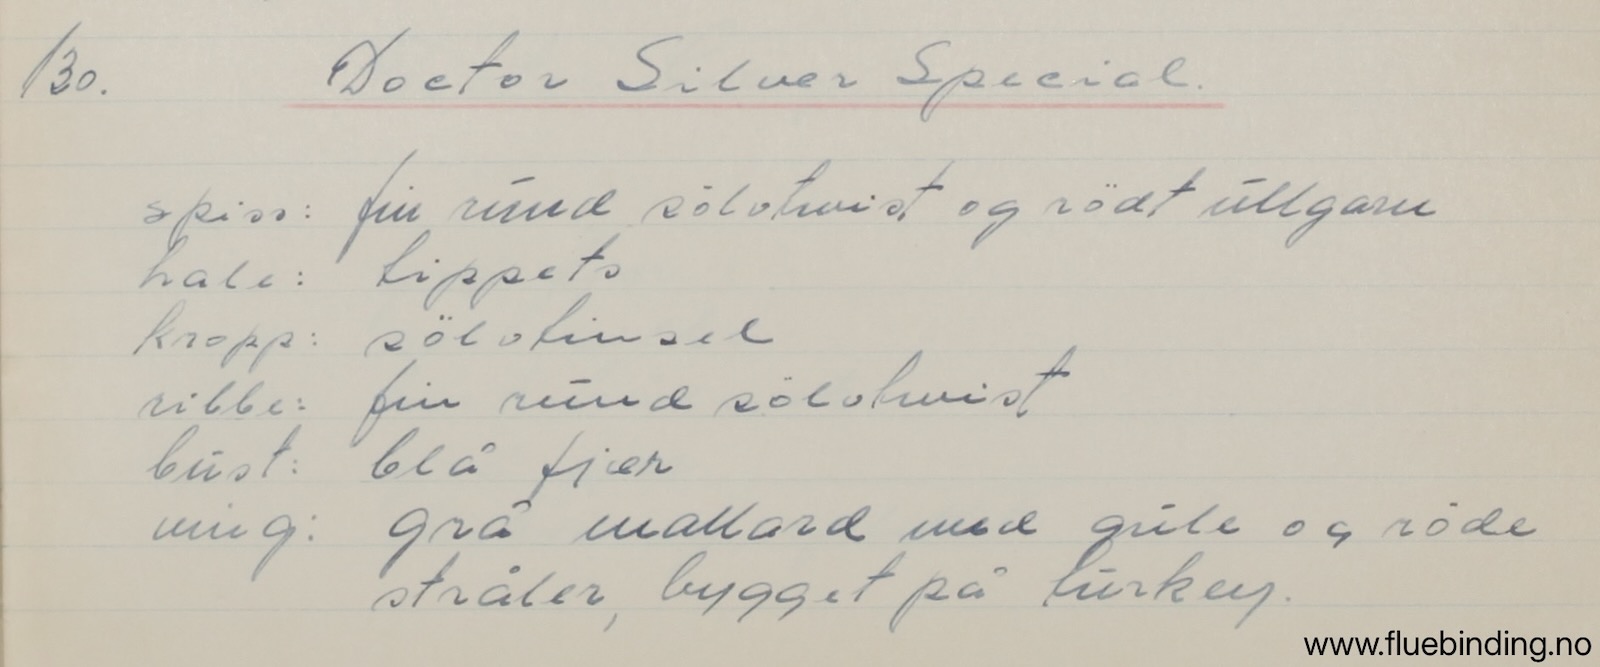 130. Doctor Silver Special.
spiss: fin rund sölvtwist og rödt ullgarn
hale: tippets
kropp: sölvtinsel
ribbe: fin rund sölvtwist
bust: blå fjær
ving: grå mallard med gule og röde
stråler, bygget på turkey.
www.fluebinding.no